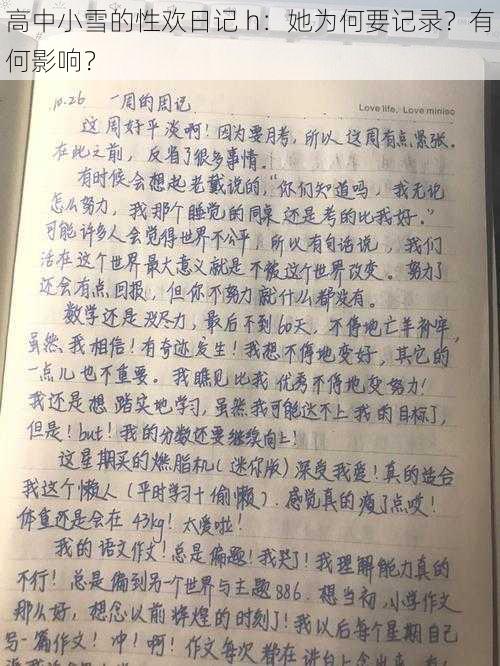 高中小雪的性欢日记 h：她为何要记录？有
何影响？
10.26 一周的周记
Love life, Love miniso
这周好平淡啊！因为要月考，所以这周有点紧张。
在此之前，反省了很多事情.
有时候会想起老戴说的，“你们知道吗，我无论
怎么努力，我那个睡觉的同桌还是考的比我好。”
可能许多人会觉得世界不公平，所以有句话说，我们
活在这个世界最大意义就是不被这个世界改变。努力了
还会有点回报，但你不努力就什么都没有。
数学还是没尽力，最后不到60天，不停地亡羊补牢，
虽然我相信！有奇迹发生！我想不停地变好，其它的
一点儿也不重要。我瞧见比我优秀不停地努力！
我还是想踏实地学习，虽然我可能达不上我的目标了，
但是！but！我的分数还要继续向上！
这星期买的燃脂机（迷你版）深受我爱！真的适合
我这个懒人（平时学习+偷懒）.感觉真的瘦了点哎！
体重还是会在 43kg！太爱啦！
我的语文作文！总是偏题！我哭了！我理解能力真的
不行！总是偏到另一个世界与主题886.想当初,小学作文
那么好，想念以前辉煌的时刻了！我以后每个星期自己
写一篇作文！冲！啊！作文每次都在讲台上念出来，有